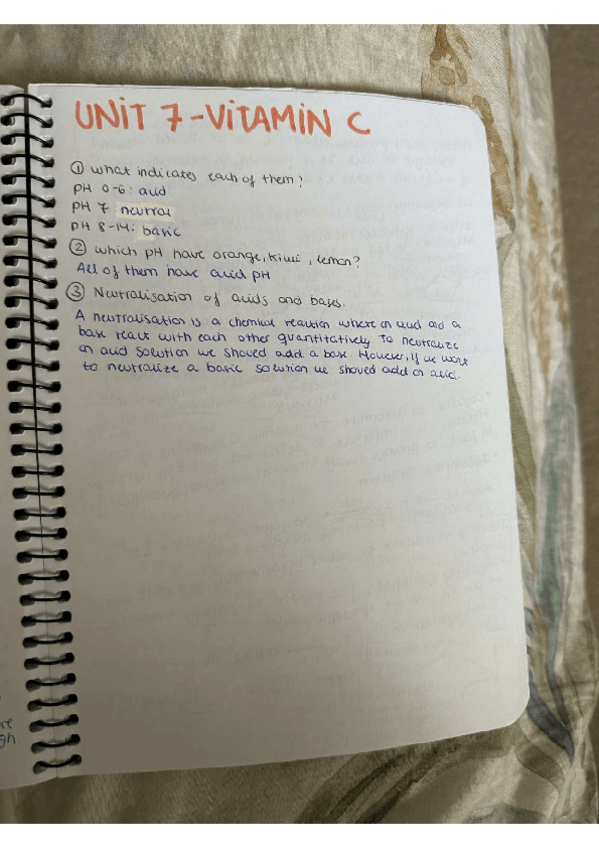 UNIT 7 - VITAMIN C
① what indicates each of them?
PH 0-6: acid
PH 7 neutral
PH 8-14: basic
② which pH have orange, kiwi, lemon?
All of them have acid pH
③ Neutralisation of acids and bases.
A neutralisation is a chemical reaction where an acid and a
base react with each other quantitatively. To neutralize
an acid solution we shoved add a base. However, if we want
to neutralize a basic solution we shoved add an acid.
re
gh.